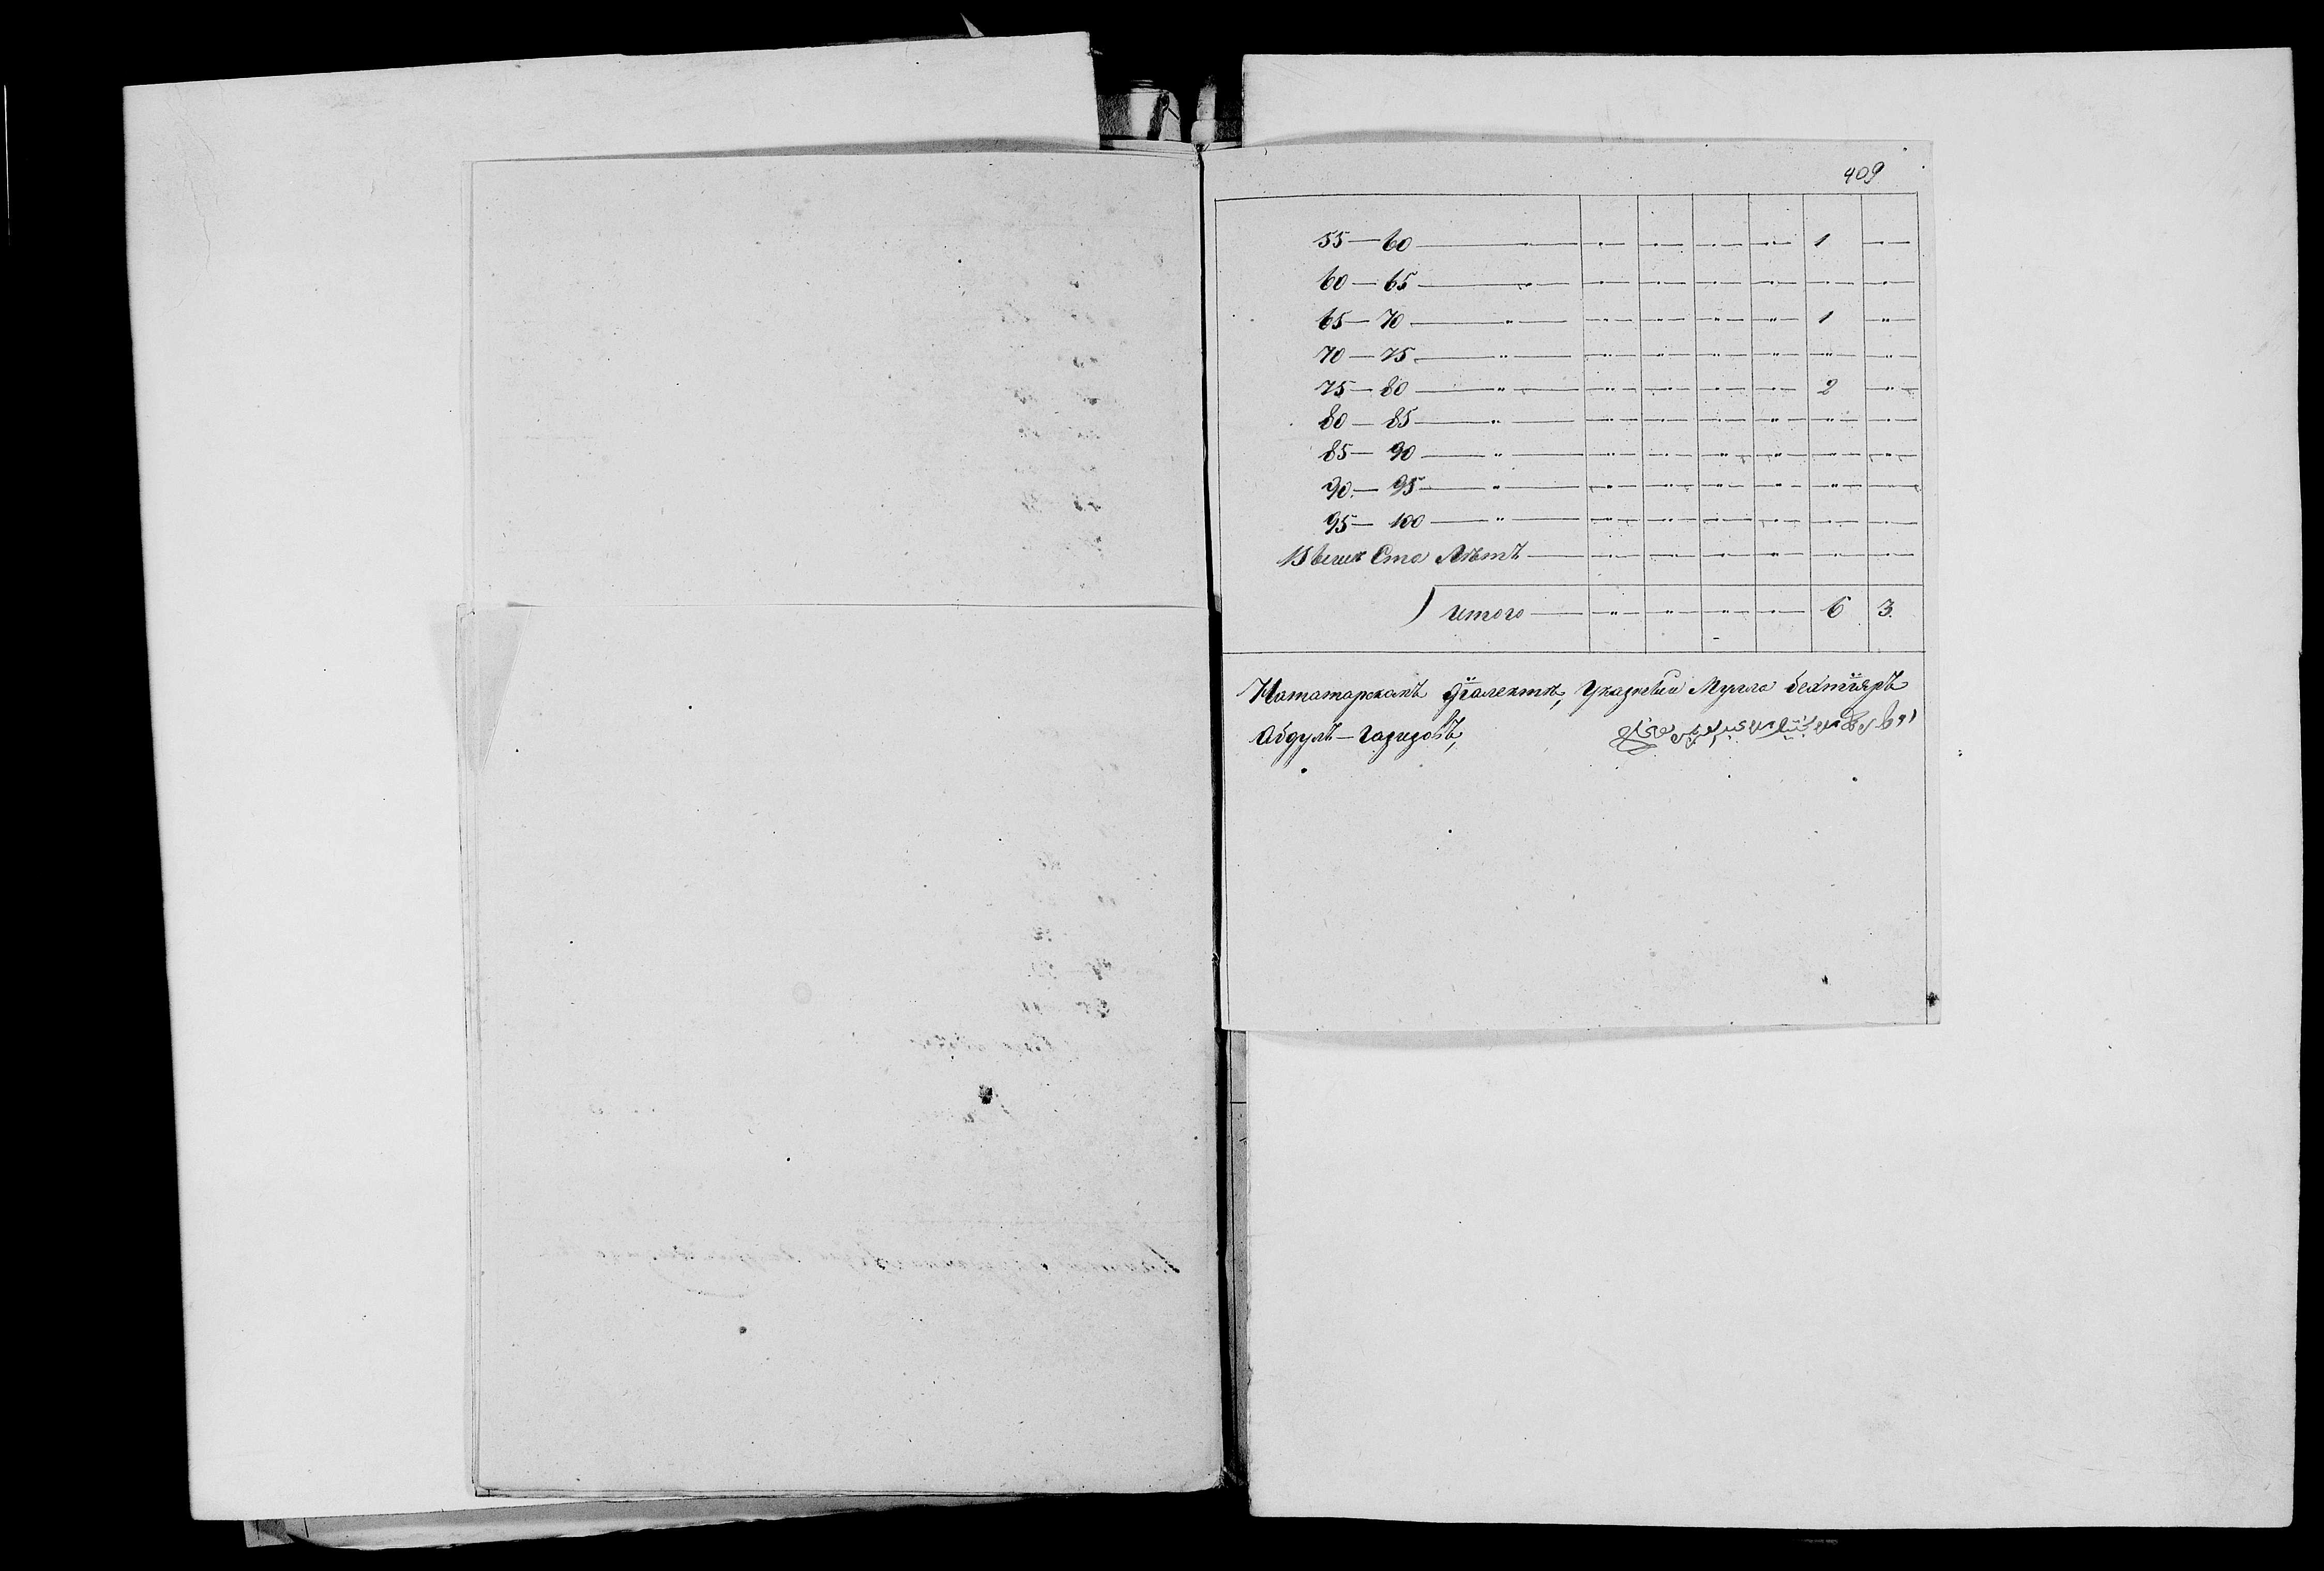 409
55 — 60 — „ — „ — „ — „ — „ — 1 — „ —
60 — 65 — „ — „ — „ — „ — „ — „ — „ —
65 — 70 — „ — „ — „ — „ — „ — 1 — „ —
70 — 75 — „ — „ — „ — „ — „ — „ — „ —
75 — 80 — „ — „ — „ — „ — „ — 2 — „ —
80 — 85 — „ — „ — „ — „ — „ — „ — „ —
85 — 90 — „ — „ — „ — „ — „ — „ — „ —
90 — 95 — „ — „ — „ — „ — „ — „ — „ —
95 — 100 — „ — „ — „ — „ — „ — „ — „ —
Ста Лѣтъ — „ — „ — „ — „ — „ — „ —
Итого — „ — „ — „ — „ — 6 3.
Нататарскомъ дїалектѣ, Указнной Мулла Бехтїяръ
Абдулъ-Газизовъ,